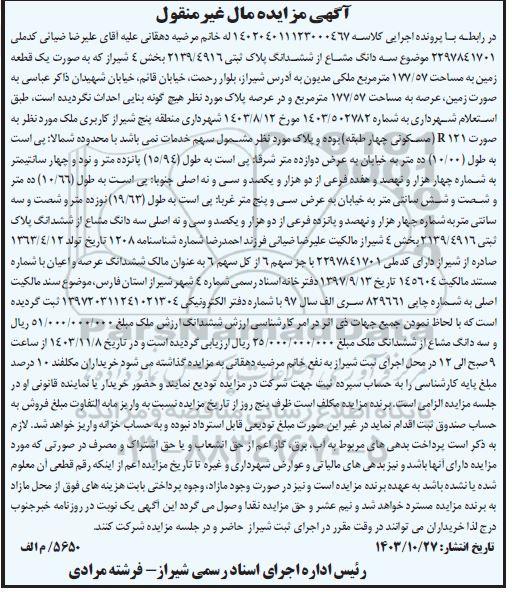 آگهی مزایده مال غیر منقول
در رابطه با پرونده اجرایی کلاسه ۱۴۰۲۰۴۰۱۱۱۲۳۰۰۰۴۶۷ له خانم مرضیه دهقانی علیه آقای علیرضا ضیائی کدملی
۲۲۹۷۸۴۱۷۰۱ موضوع سه دانگ مشاع از ششدانگ پلاک ثبتی ۲۱۳۹/۴۹۱۶ بخش ۴ شیراز که به صورت یک قطعه
زمین به مساحت ۱۷۷/۵۷ مترمربع ملکی مدیون به آدرس شیراز، بلوار رحمت، خیابان قائم، خیابان شهیدان ذاکر عباسی به
صورت زمین، عرصه به مساحت ۱۷۷/۵۷ مترمربع و در عرصه پلاک مورد نظر هیچ گونه بنایی احداث نگردیده است، طبق
استعلام شهرداری به شماره ۱۴۰۳/۵۰۲۷۸۲ مورخ ۱۴۰۳/۸/۱۲ شهرداری منطقه پنج شیراز کاربری ملک مورد نظر به
صورت R ۱۲۱ (مسکونی چهار طبقه) بوده و پلاک مورد نظر مشمول سهم خدمات نمی باشد با محدوده شمالا: پی است
به طول (۱۰/۰۰) ده متر به خیابان به عرض دوازده متر شرقا: پی است به طول (۱۵/۹۴) پانزده متر و نود و چهار سانتیمتر
به شماره چهار هزار و نهصد و هفده فرعی از دو هزار و یکصد و سی و نه اصلی جنوبا: پی است به طول (۱۰/۶۶) ده متر
و شصت و شش سانتی متر به خیابان به عرض سی و پنج متر غربا: پی است به طول (۱۹/۶۳) نوزده متر و شصت و سه
سانتی متر به شماره چهار هزار و نهصد و پانزده فرعی از دو هزار و یکصد و سی و نه اصلی سه دانگ مشاع از ششدانگ پلاک
ثبتی ۲۱۳۹/۴۹۱۶ بخش ۴ شیراز مالکیت علیرضا ضیائی فرزند احمدرضا شماره شناسنامه ۱۲۰۸ تاریخ تولد ۱۳۶۳/۴/۱۲
صادره از شیراز دارای کدملی ۲۲۹۷۸۴۱۷۰۱ با جز سهم ۶ از کل سهم ۶ به عنوان مالک ششدانگ عرصه و اعیان با شماره
مستند مالکیت ۱۴۵۶۰۴ تاریخ ۱۳۹۷/۹/۱۳ دفترخانه اسناد رسمی شماره ۴ شهر شیراز استان فارس، موضوع سند مالکیت
اصلی به شماره چاپی ۸۲۹۶۶۱ سری الف سال ۹۷ با شماره دفتر الکترونیکی ۱۳۹۷۲۰۳۱۱۲۴۱۰۲۱۳۰۴ ثبت گردیده
است که با لحاظ نمودن جمیع جهات ذی اثر در امر کارشناسی ارزش ششدانگ ارزش ملک مبلغ ۵۱/۰۰۰/۰۰۰/۰۰۰ ریال
و سه دانگ مشاع از ششدانگ ملک مبلغ ۲۵/۵۰۰/۰۰۰/۰۰۰ ریال ارزیابی گردیده است و در تاریخ ۱۴۰۳/۱۱/۸ از ساعت
۹ صبح الی ۱۲ در محل اجرای ثبت شیراز به نفع خانم مرضیه دهقانی به مزایده گذاشته می شود خریداران مکلفند ۱۰ درصد
مبلغ پایه کارشناسی را به حساب سپرده ثبت جهت شرکت در مزایده تودیع نمایند و حضور خریدار یا نماینده قانونی او در
جلسه مزایده الزامی است. برنده مزایده مکلف است ظرف پنج روز از تاریخ مزایده نسبت به واریز مابه التفاوت مبلغ فروش به
حساب صندوق ثبت اقدام نماید در غیر این صورت مبلغ تودیعی قابل استرداد نبوده و به حساب خزانه واریز خواهد شد. لازم
به ذکر است پرداخت بدهی های مربوط به آب، برق، گاز اعم از حق انشعاب و یا حق اشتراک و مصرف در صورتی که مورد
مزایده دارای آنها باشد و نیز بدهی های مالیاتی و عوارض شهرداری و غیره تا تاریخ مزایده اعم از اینکه رقم قطعی آن معلوم
شده یا نشده باشد به عهده برنده مزایده است و نیز در صورت وجود مازاد، وجوه پرداختی بابت هزینه های فوق از محل مازاد
به برنده مزایده مسترد خواهد شد و نیم عشر و حق مزایده نقدا وصول می گردد این آگهی یک نوبت در روزنامه خبرجنوب
درج لذا خریداران می توانند در وقت مقرر در اجرای ثبت شیراز حاضر و در جلسه مزایده شرکت کنند.
تاریخ انتشار: ۱۴۰۳/۱۰/۲۷ ۵۶۵۰/م الف
رئیس اداره اجرای اسناد رسمی شیراز - فرشته مرادی